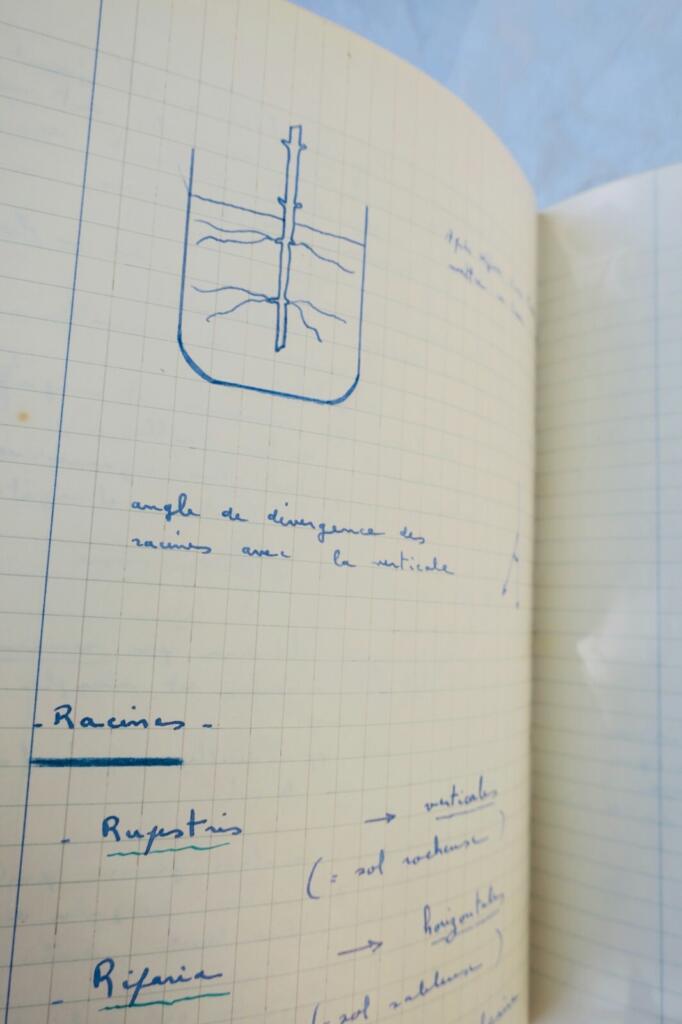 angle de divergence des
racines avec la verticale
- Racines -
- Rupestris → verticales
(= sol rocheux)
- Riparia → horizontales
(= sol sableux)